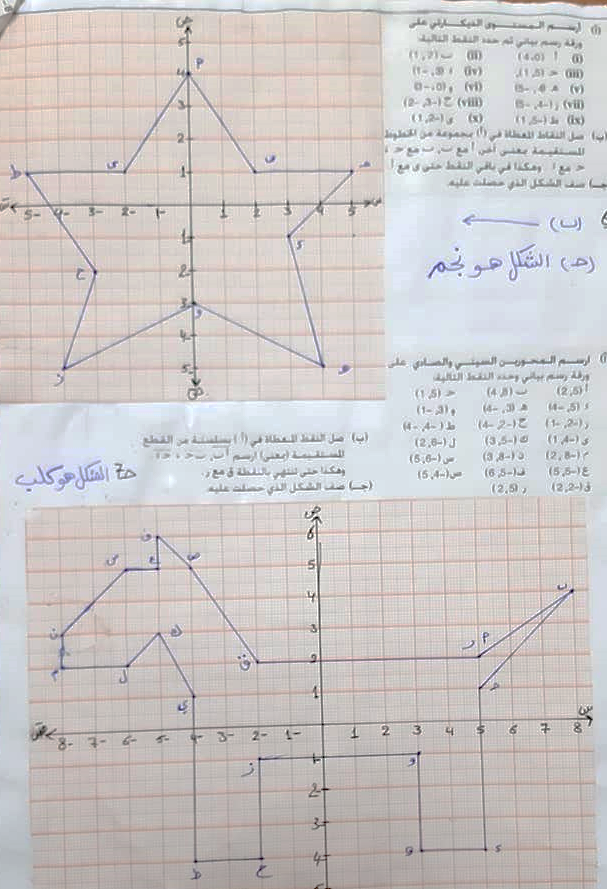 (أ) أرسم المستوى الديكارتي على
ورقة رسم بياني ثم حدد النقط التالية.
(i) أ (4،0) (ii) ب (1،2)
(iii) حـ (1،5) (iv) ء (3، -1)
(v) هـ (4، -5) (vi) و (0، -3)
(vii) ز (-4، -5) (viii) ح (-3، -2)
(ix) ط (-5، 1) (x) ى (-1،2)
(ب) صل النقاط المعطاة في (أ) بمجموعة من الخطوط
المستقيمة بمعنى آخر، أ مع ب، ب مع حـ،
حـ مع ء وهكذا في باقي النقط حتى ى مع أ
(جـ) صف الشكل الذي حصلت عليه.
(ب)
(حـ) الشكل هو نجم
(أ) ارسم المحورين السيني والصادي على
ورقة رسم بياني وحدد النقط التالية.
أ (2،5) ب (4،8) حـ (1،5)
ء (5، -4) هـ (3، -4) و (3، -1)
ز (-2، -1) ح (-2، -4) ط (-4، -4)
ى (-4، 1) ك (-5، 3) ل (-6، 2)
م (-8، 2) ن (-8، 3) س (-6، 5)
ع (-5، 5) ف (-5، 6) ص (-4، 5)
ق (-2، 2) ر (2،5)
(ب) صل النقط المعطاة في (أ) بسلسلة من القطع
المستقيمة (بمعنى) ارسم أ ب، ب حـ، حـ ء
وهكذا حتى تنتهي بالنقطة ق مع ر.
(جـ) صف الشكل الذي حصلت عليه.
حـ) الشكل هو كلب
ص
5
4 م
3
2
ط ى 1 ب حـ
5- 4- 3- 2- 1- 1 2 3 4 5 س
1 ء
ح 2
3 و
4
ز 5 هـ
ص
ف 6
س ع ص 5
4 ب
ن ك 3
م ل ق 2 ر م
ى 1 حـ
8- 7- 6- 5- 4- 3- 2- 1- 1 2 3 4 5 6 7 8 س
ز 1 و
2
3
ط ح 4 هـ ء
5